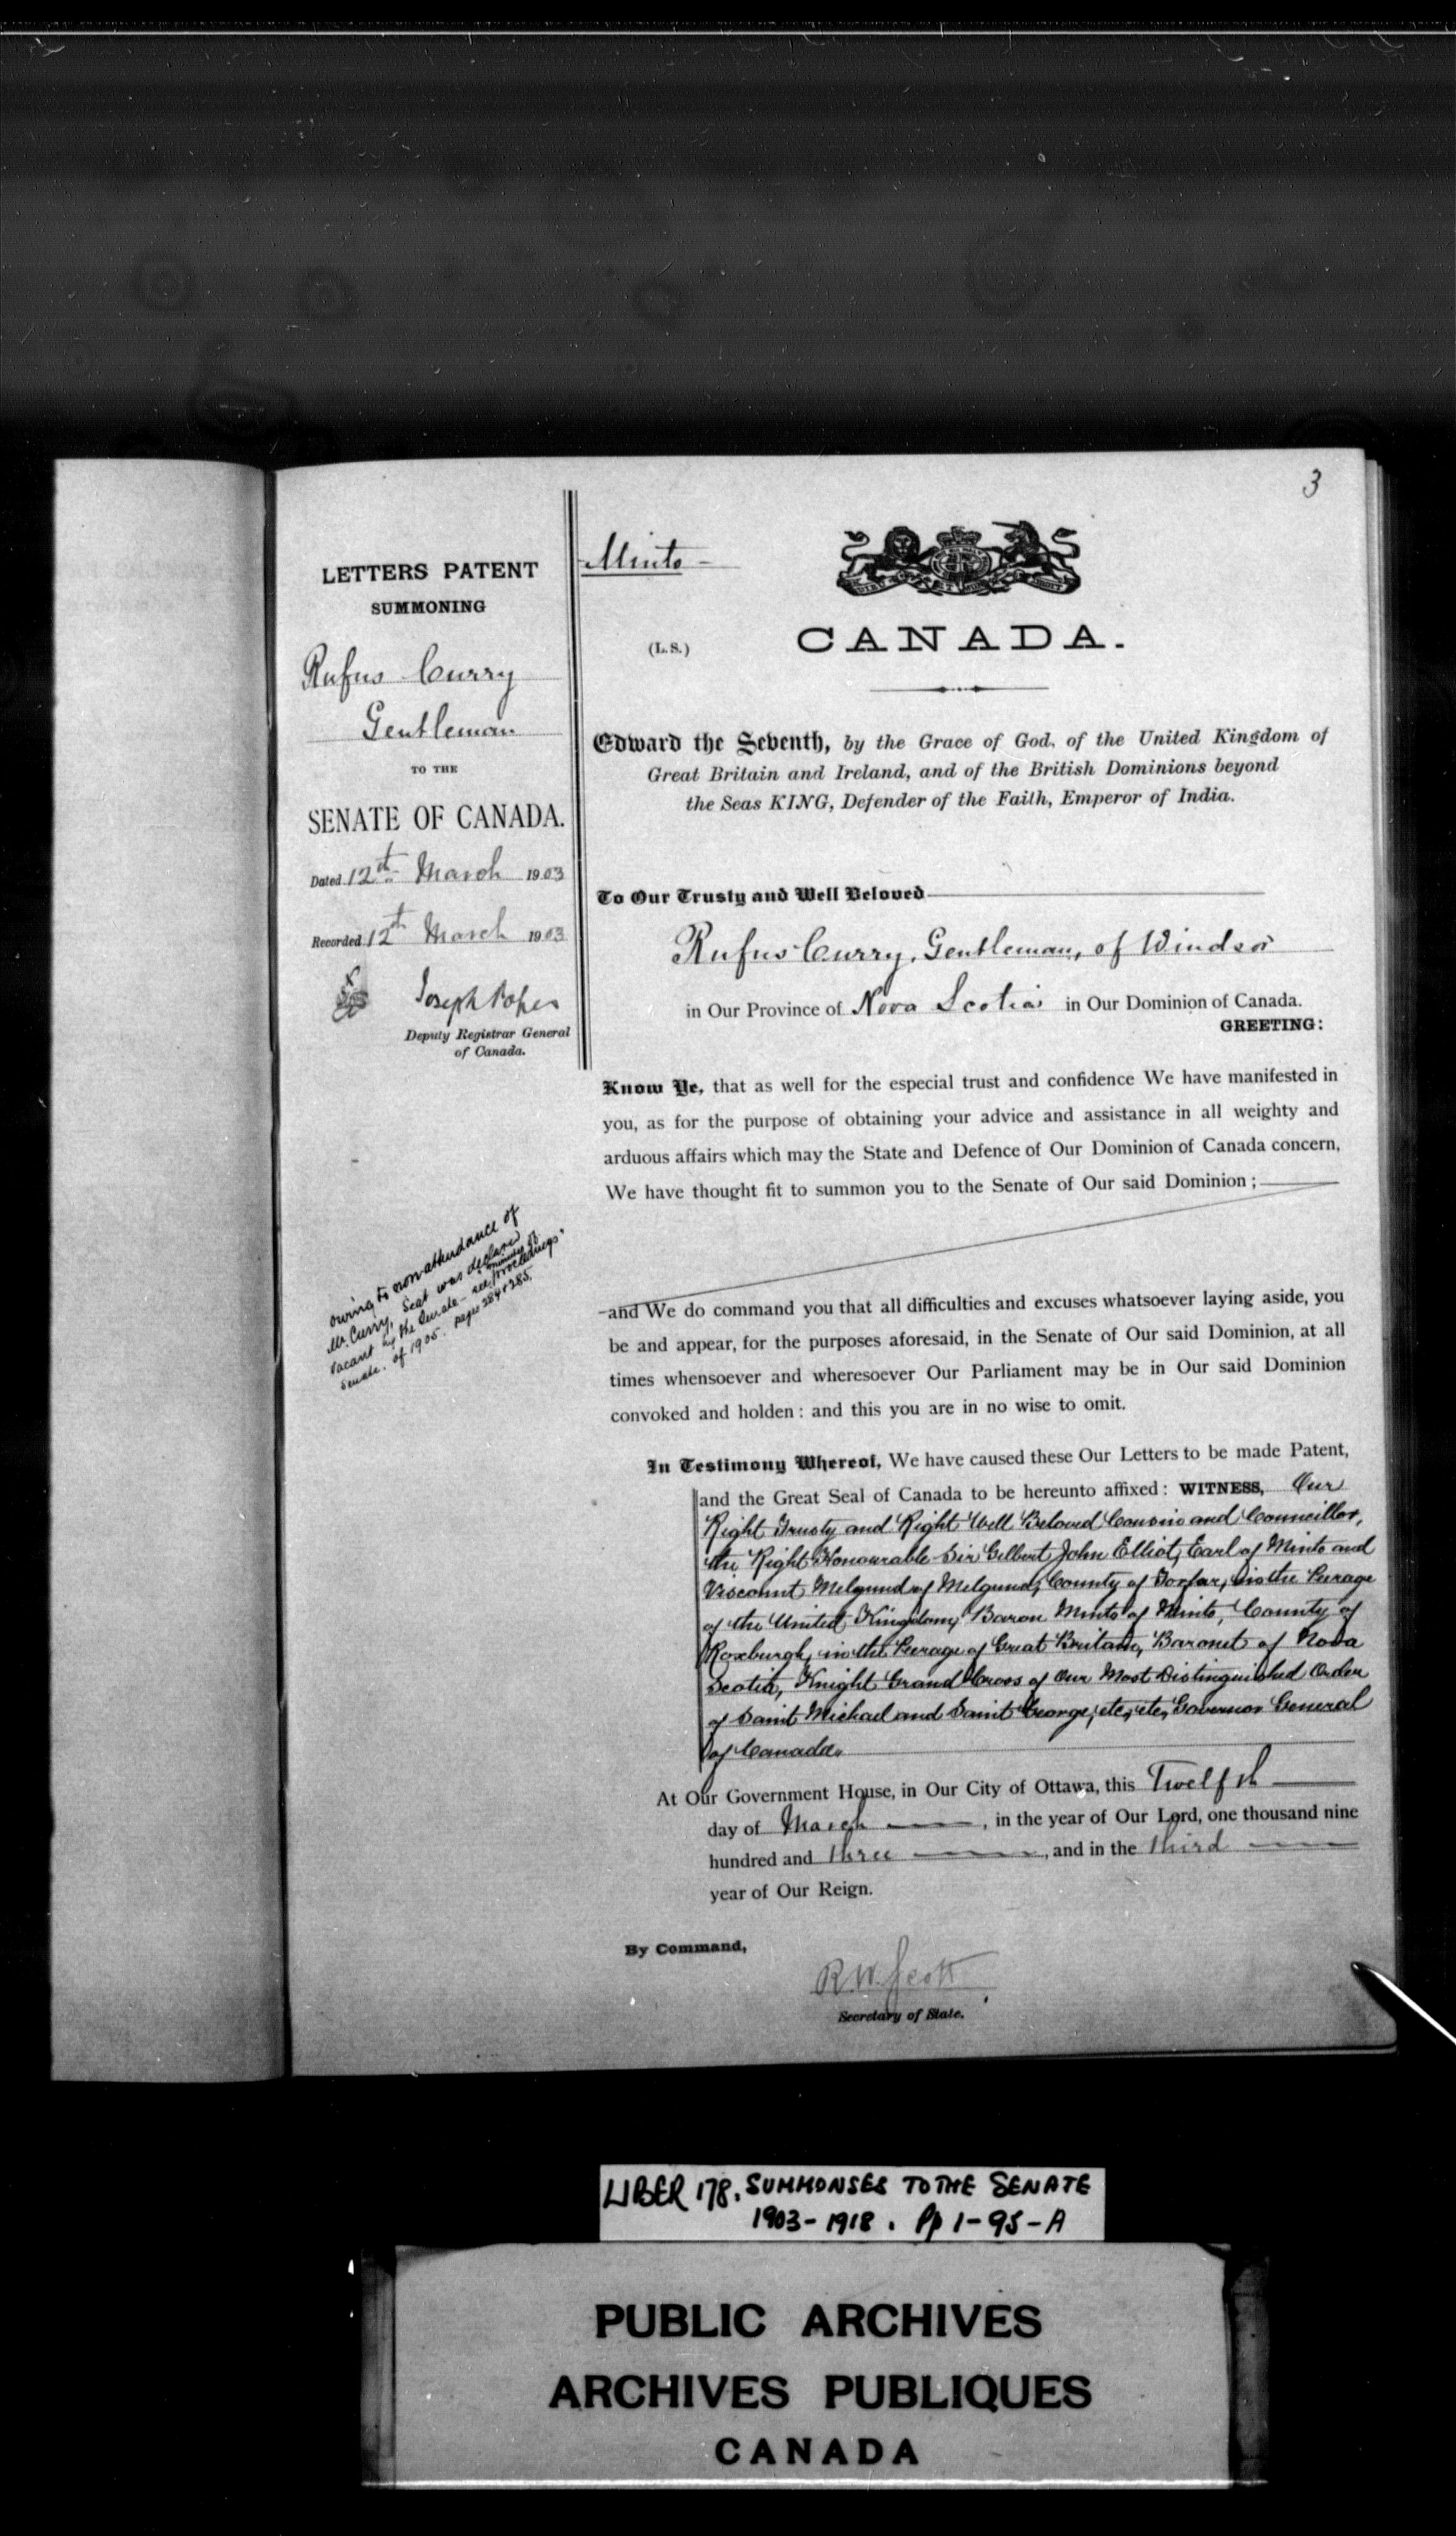 3
LETTERS PATENT
SUMMONING
Rufus Curry
Gentleman
TO THE
SENATE OF CANADA.
Dated 12th March 1903
Recorded 12th March 1903
Joseph Pope
Deputy Registrar General
of Canada.
owing to nonattendance of
Mr. Curry, Seat was declared
vacant by the Senate - see "minutes of Proceedings"
Senate. of 1905. pages 284 & 285.
Minto
(L.S.)
CANADA.
Edward the Seventh, by the Grace of God, of the United Kingdom of
Great Britain and Ireland, and of the British Dominions beyond
the Seas KING, Defender of the Faith, Emperor of India.
To Our Trusty and Well Beloved
Rufus Curry, Gentleman, of Windsor
in Our Province of Nova Scotia in Our Dominion of Canada.
GREETING:
Know Ye, that as well for the especial trust and confidence We have manifested in
you, as for the purpose of obtaining your advice and assistance in all weighty and
arduous affairs which may the State and Defence of Our Dominion of Canada concern,
We have thought fit to summon you to the Senate of Our said Dominion;
and We do command you that all difficulties and excuses whatsoever laying aside, you
be and appear, for the purposes aforesaid, in the Senate of Our said Dominion, at all
times whensoever and wheresoever Our Parliament may be in Our said Dominion
convoked and holden: and this you are in no wise to omit.
In Testimony Whereof, We have caused these Our Letters to be made Patent,
and the Great Seal of Canada to be hereunto affixed: WITNESS, Our
Right Trusty and Right Well Beloved Cousin and Councillor,
the Right Honourable Sir Gilbert John Elliot, Earl of Minto and
Viscount Melgund of Melgund, County of Forfar, in the Peerage
of the United Kingdom, Baron Minto of Minto, County of
Roxburgh, in the Peerage of Great Britain, Baronet of Nova
Scotia, Knight Grand Cross of Our Most Distinguished Order
of Saint Michael and Saint George, etc, etc, Governor General
of Canada.
At Our Government House, in Our City of Ottawa, this Twelfth
day of March, in the year of Our Lord, one thousand nine
hundred and three, and in the third
year of Our Reign.
By Command,
R. W. Scott
Secretary of State.
LIBER 178. SUMMONSES TO THE SENATE
1903-1918. Pp 1-95-A
PUBLIC ARCHIVES
ARCHIVES PUBLIQUES
CANADA